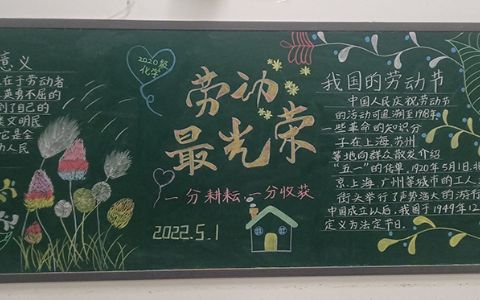 意义
在于劳动者
英勇不屈的
到了自己的
类文明民
它是全
动人民
2020级
化学
劳动
最光荣
一分耕耘 一分收获
2022.5.1
我国的劳动节
中国人民庆祝劳动节
的活动可追溯至1918年.
一些革命的知识分
子在上海、苏州
等地向群众散发介绍
"五一"的传单,1920年5月1日,
京、上海、广州等城市的工人
街头举行了声势浩大的游行
中国成立以后,我国于1949年12
定义为法定节日.